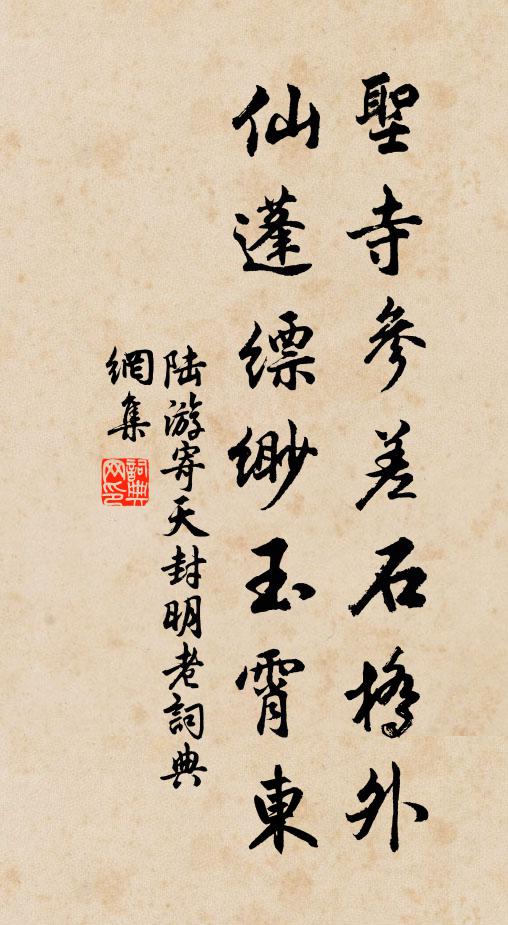 聖寺參差石橋外
仙蓬縹緲玉霄東
陆游寄天封明老詞典
網集
詞典
网印